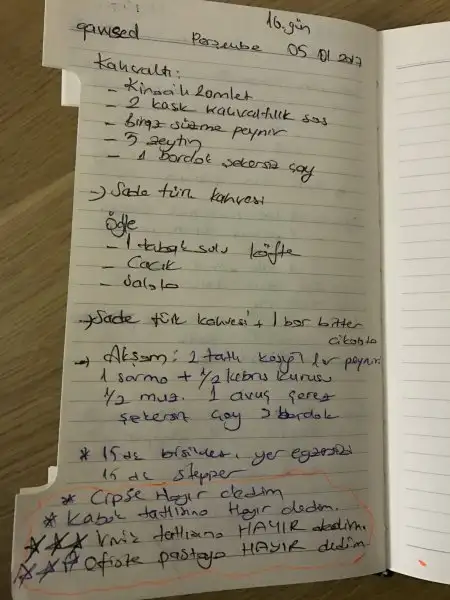 16. gün
Perşembe 05 01 2017
Kahvaltı:
- omlet
- 2 kaşık kahvaltılık sos
- biraz süzme peynir
- 5 zeytin
- 1 bardak şekersiz çay
→ Sade türk kahvesi
Öğle
- 1 tabak sulu köfte
- Cacık
- Salata
→ Sade türk kahvesi + 1 bar bitter
çikolata
→ Akşam: 2 tatlı kaşığı lor peyniri
1 sarma + 1/2 kıbrıs kurusu
1/2 muz. 1 avuç çerez
şekersiz çay 2 bardak
* 15 dk bisiklet, yer egzersizi
15 dk stepper
* Cipse Hayır dedim
* Kabak tatlısına Hayır dedim.
*** tatlısına HAYIR dedim.
*** Ofiste pastaya HAYIR dedim.